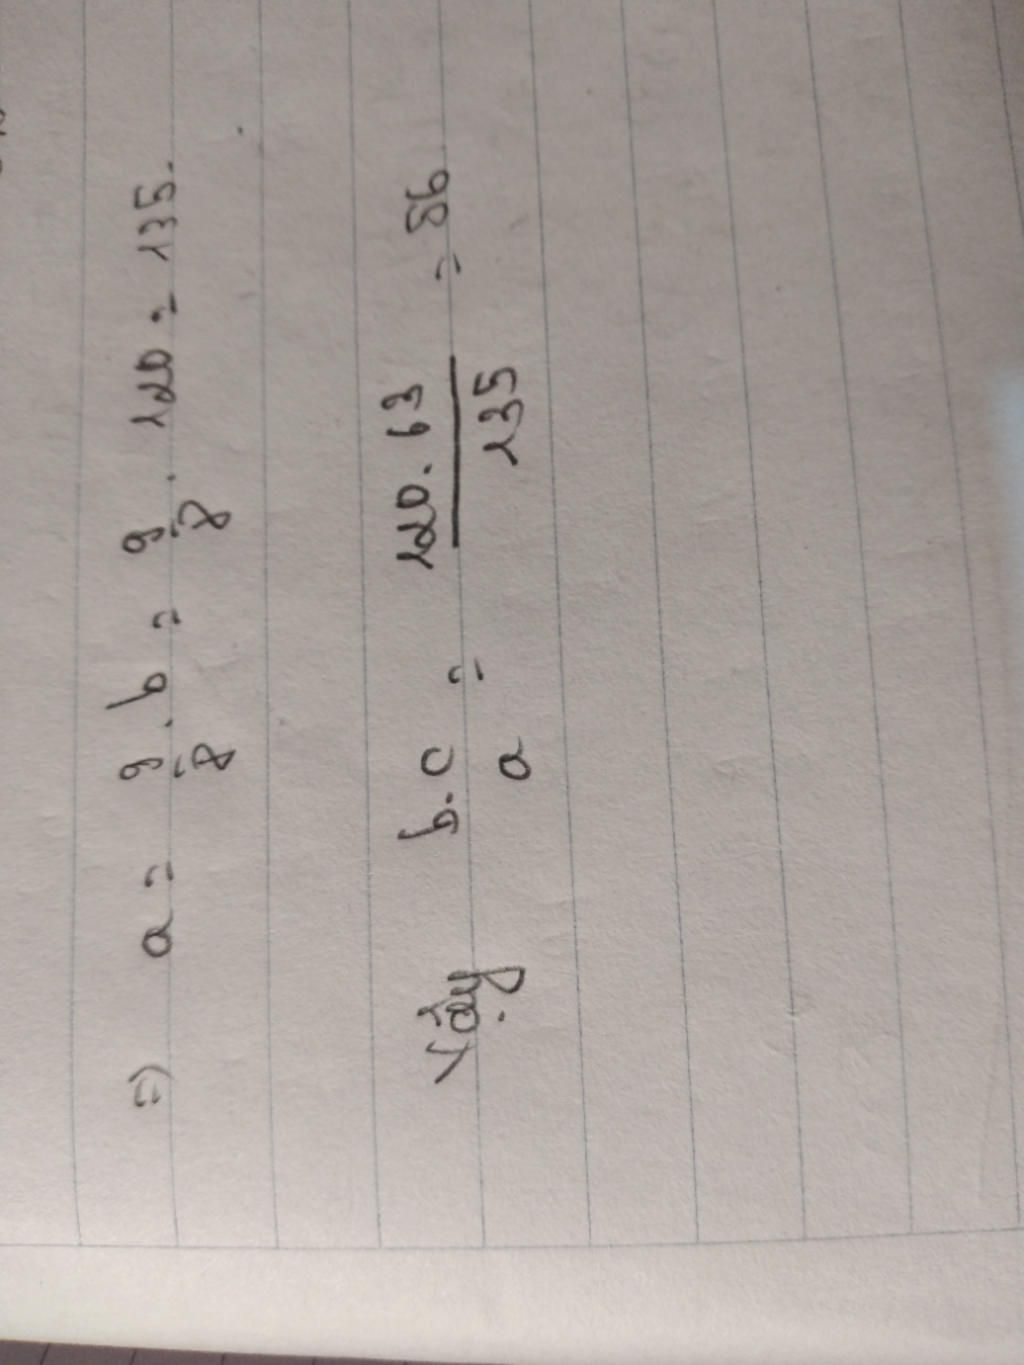 =) a = 9/8 . b = 9/8 . 120 = 135.
Vậy b.c/a = 120.63/135 = 56